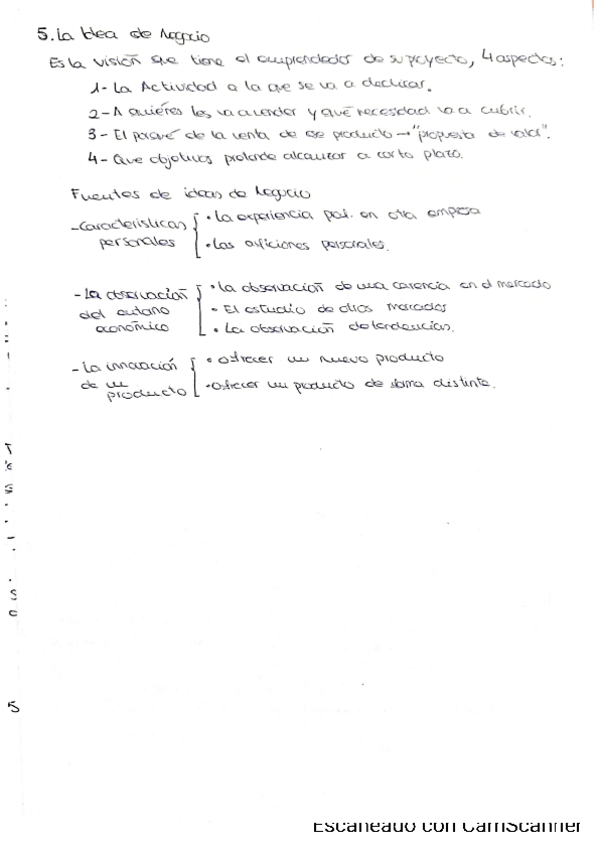 5. La Idea de Negocio
Es la visión que tiene el emprendedor de su proyecto, 4 aspectos:
1- La Actividad a la que se va a dedicar.
2- A quiénes les va a vender y qué necesidad va a cubrir.
3- El porqué de la venta de ese producto → "propuesta de valor".
4- Que objetivos pretende alcanzar a corto plazo.
Fuentes de ideas de Negocio
- Características personales
• La experiencia prof. en otra empresa
• Las aficiones personales.
- La observación del entorno económico
• La observación de una carencia en el mercado
• El estudio de otros mercados
• La observación de tendencias.
- La innovación de un producto
• Ofrecer un nuevo producto
• Ofrecer un producto de forma distinta.
5
Escaneado con CamScanner